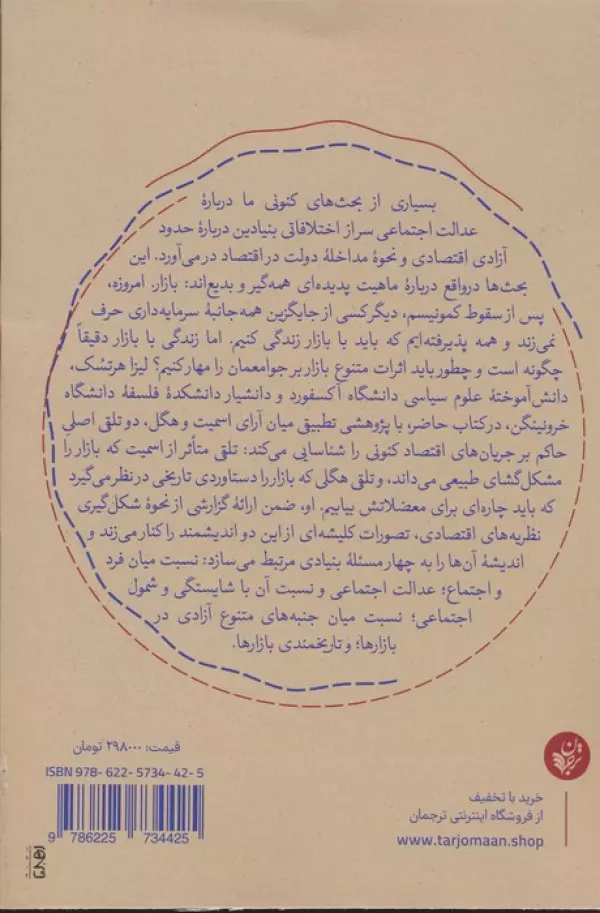 بسیاری از بحث‌های کنونی ما دربارهٔ
عدالت اجتماعی سر از اختلافاتی بنیادین دربارهٔ حدود
آزادی اقتصادی و نحوهٔ مداخلهٔ دولت در اقتصاد در می‌آورد. این
بحث‌ها درواقع دربارهٔ ماهیت پدیده‌ای همه‌گیر و بدیع‌اند: بازار. امروزه،
پس از سقوط کمونیسم، دیگر کسی از جایگزین همه‌جانبهٔ سرمایه‌داری حرف
نمی‌زند و همه پذیرفته‌ایم که باید با بازار زندگی کنیم. اما زندگی با بازار دقیقاً
چگونه است و چطور باید اثرات متنوع بازار بر جوامعمان را مهار کنیم؟ لیزا هرتسُک،
دانش‌آموختهٔ علوم سیاسی دانشگاه آکسفورد و دانشیار دانشکدهٔ فلسفهٔ دانشگاه
خرونینگن، در کتاب حاضر، با پژوهشی تطبیقی میان آرای اسمیت و هگل، دو تلقی اصلیِ
حاکم بر جریان‌های اقتصاد کنونی را شناسایی می‌کند: تلقی متأثر از اسمیت که بازار را
مشکل‌گشای طبیعی می‌داند، و تلقی هگلی که بازار را دستاوردی تاریخی در نظر می‌گیرد
که باید چاره‌ای برای معضلاتش بیابیم. او، ضمن ارائهٔ گزارشی از نحوهٔ شکل‌گیری
نظریه‌های اقتصادی، تصورات کلیشه‌ای از این دو اندیشمند را کنار می‌زند و
اندیشهٔ آن‌ها را به چهار مسئلهٔ بنیادی مرتبط می‌سازد: نسبت میان فرد
و اجتماع؛ عدالت اجتماعی و نسبت آن با شایستگی و شمول
اجتماعی؛ نسبت میان جنبه‌های متنوع آزادی در
بازارها؛ و تاریخمندی بازارها.
قیمت: ۲۹۸۰۰۰ تومان
ISBN 978-622-5734-42-5
9 786225 734425
ترجمان
خرید با تخفیف
از فروشگاه اینترنتی ترجمان
www.tarjomaan.shop